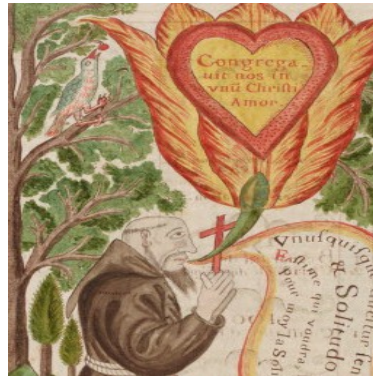 Congrega-
uit nos in
vnū Christi
Amor.
Vnuſquiſqu
Ayme qui voudra,
pour moy la Soli
& Solitudo